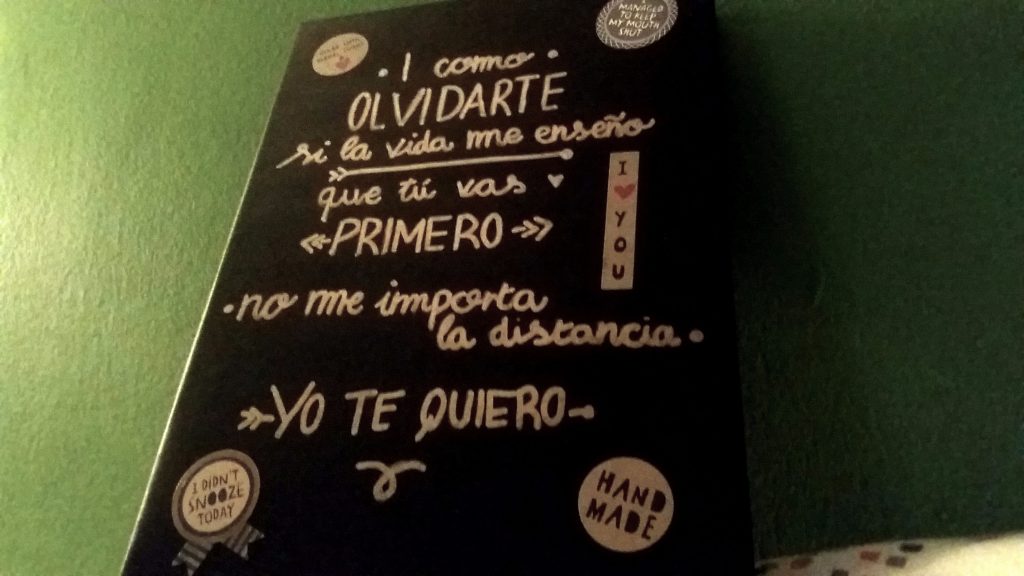 MANAGED
TO KEEP
MY MOUTH
SHUT
· I como ·
OLVIDARTE
si la vida me enseño
que tú vas
PRIMERO
I ♥ YOU
· no me importa
la distancia ·
YO TE QUIERO
I DIDN'T
SNOOZE
TODAY
HAND
MADE